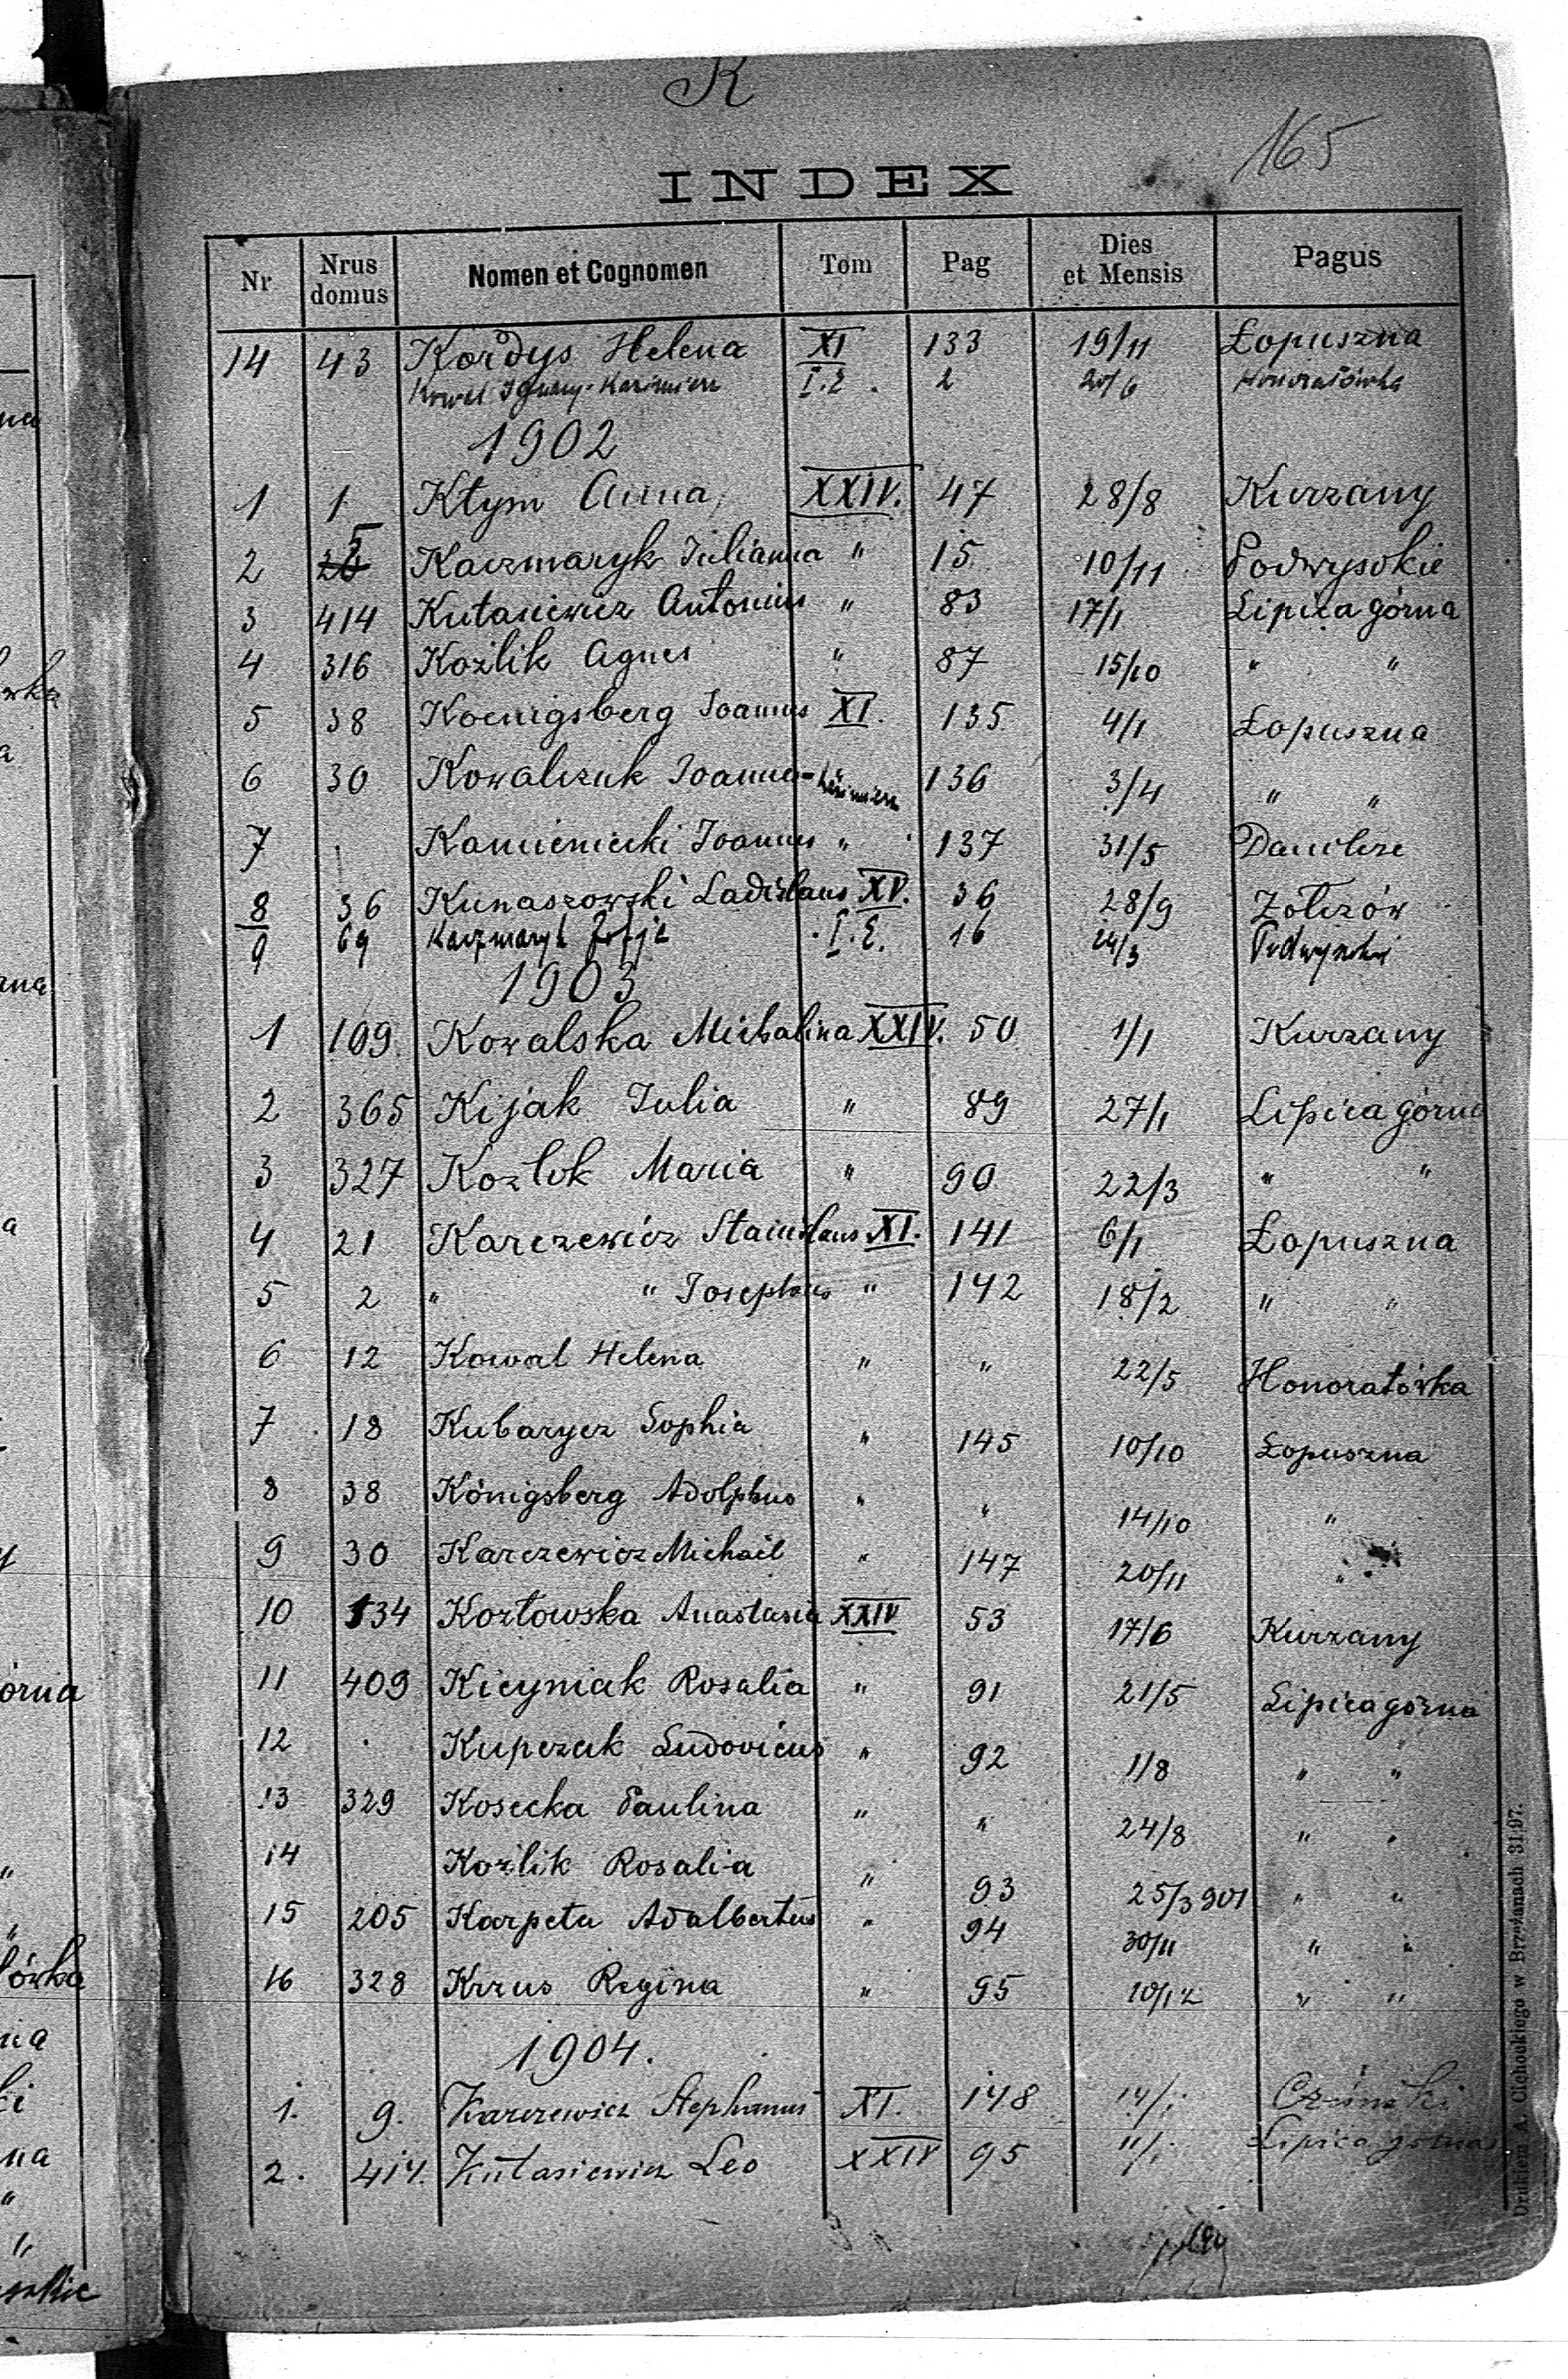 K
165
INDEX
Nr Nrus domus Nomen et Cognomen Tom Pag Dies et Mensis Pagus
14 43 Kordys Helena XI 133 19/11 Łopuszna
Kowal Ignacy-Kazimierz I.E. 2 20/6 Honoratówka
1902
1 1 Kłym Anna XXIV. 47 28/8 Kurzany
2 5 Kaczmaryk Julianna " 15 10/11 Podwysokie
3 414 Kutasiewicz Antonius " 83 17/1 Lipica górna
4 316 Koźlik Agnes " 87 15/10 " "
5 38 Koenigsberg Joannes XI. 135 4/1 Łopuszna
6 30 Kowalczuk Joannes-Kazimierz " 136 3/4 " "
7 Kamieniecki Joannes " 137 31/5 Danilcze
8 36 Kunaszowski Ladislaus XV. 36 28/9 Zołczów
9 69 Kaczmaryk Zofja I.E. 16 24/3 Podwysokie
1903
1 109 Kowalska Michalina XXIV. 50 1/1 Kurzany
2 365 Kijak Julia " 89 27/1 Lipica górna
3 327 Kozlik Maria " 90 22/3 " "
4 21 Karczewicz Stanislaus XI. 141 6/1 Łopuszna
5 2 " " Josephus " 142 18/2 " "
6 12 Kowal Helena " " 22/5 Honoratówka
7 18 Kubarycz Sophia " 145 10/10 Łopuszna
8 38 Königsberg Adolphus " " 14/10 "
9 30 Karczewicz Michael " 147 20/11 "
10 134 Kozłowska Anastasia XXIV 53 17/6 Kurzany
11 409 Kicyniak Rosalia " 91 21/5 Lipica górna
12 Kupczak Ludovicus " 92 1/8 " "
13 329 Kosecka Paulina " " 24/8 " "
14 Koźlik Rosalia " 93 25/3 901 " "
15 205 Karpeta Adalbertus " 94 30/11 " "
16 328 Krzus Regina " 95 10/12 " "
1904.
1. 9. Karczewicz Stephanus XI. 148 14/1
2. 414. Kutasiewicz Leo XXIV 95 11/1 Lipica górna
Drukiem A. Cichockiego w Brzeżanach 31 97.